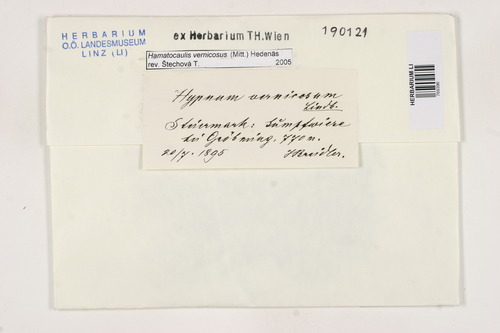 HERBARIUM
O.Ö. LANDESMUSEUM
LINZ (LI)
ex Herbarium TH.Wien
190121
Hamatocaulis vernicosus (Mitt.) Hedenäs
rev. Štechová T. 2005
Hypnum vernicosum
Lindb.
Steiermark: Sumpfwiese
bei Gröbming, 770 m.
20/7. 1895 JBreidler.
HERBARIUM LI